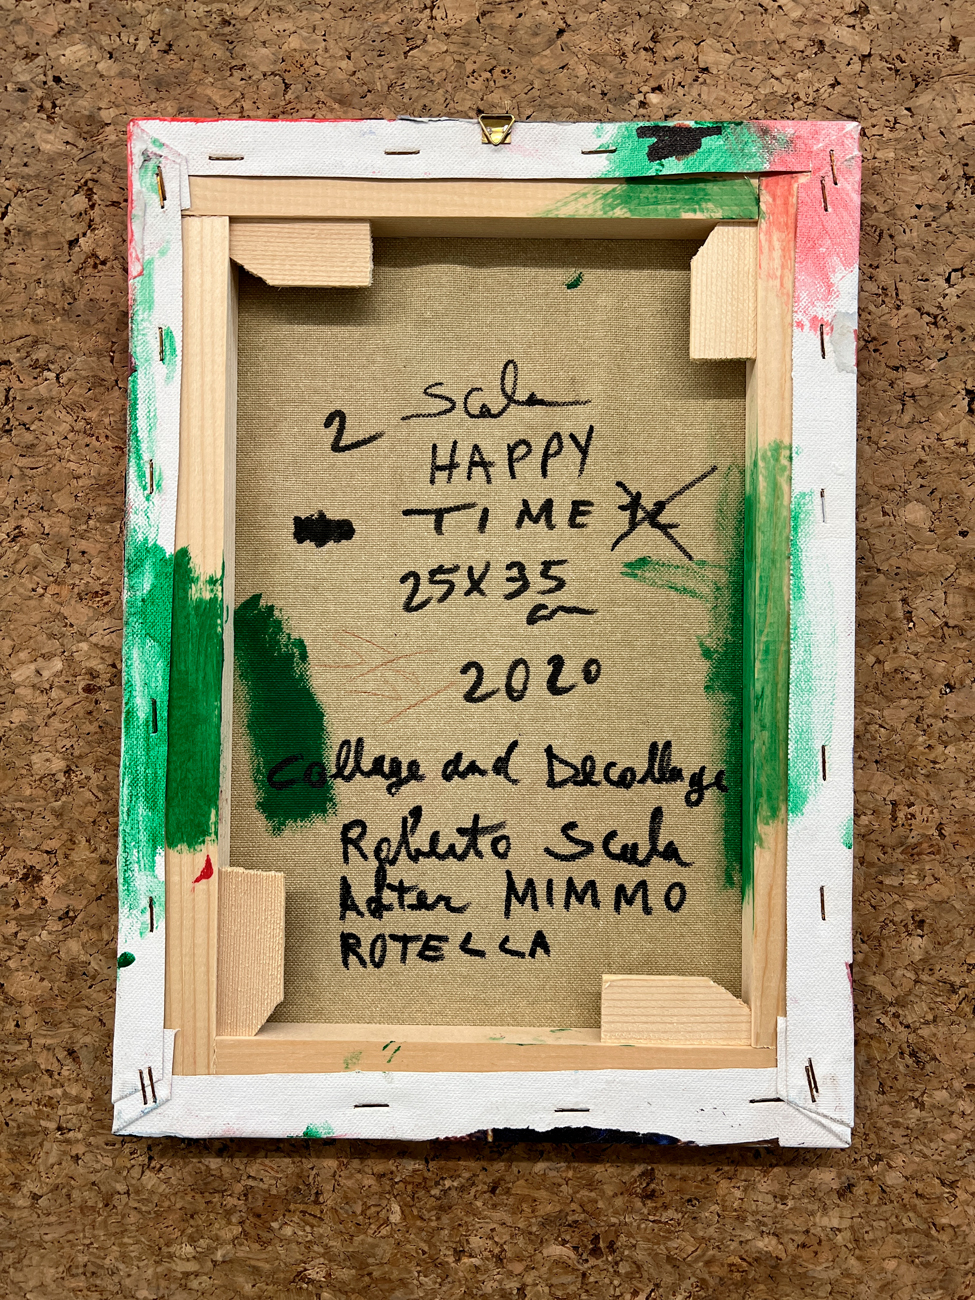 Scala
2 HAPPY
TIME
25X35
cm
2020
Collage and Decollage
Roberto Scala
After MIMMO
ROTELLA